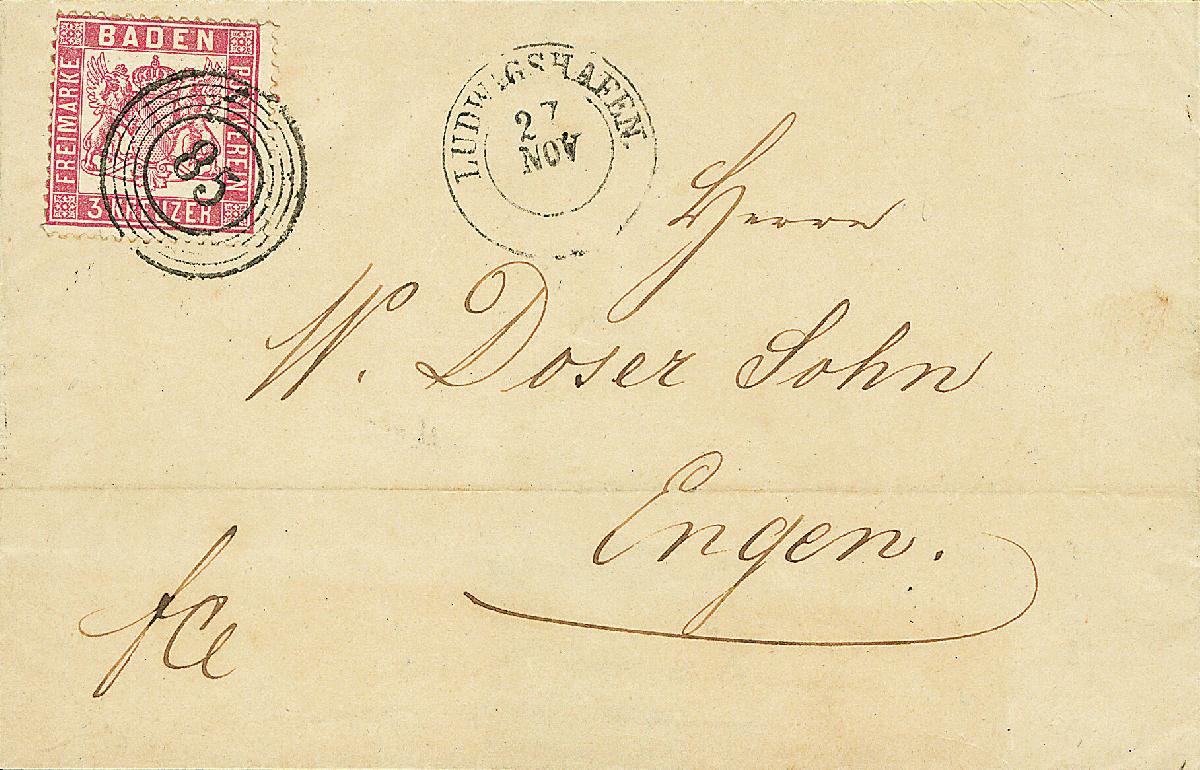 BADEN
FREIMARKE
POSTVEREIN
3 KREUZER
85
LUDWIGSHAFEN.
27
NOV
Herrn
W. Doser Sohn
Engen.
fco